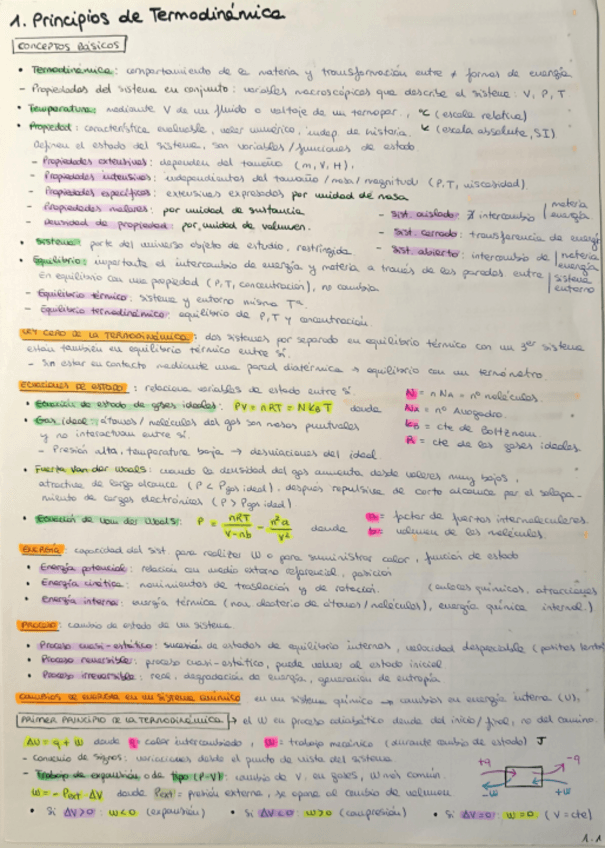 1. Principios de Termodinámica
CONCEPTOS BÁSICOS
• Termodinámica: comportamiento de la materia y transformación entre ≠ formas de energía
- Propiedades del sistema en conjunto: variables macroscópicas que describe el sistema: V, P, T
• Temperatura: mediante V de un fluido o voltaje de un termopar., ºC (escala relativa)
• Propiedad: característica evaluable, valor numérico, indep. de historia. K (escala absoluta, SI)
Definen el estado del sistema, son variables / funciones de estado
- Propiedades extensivas: dependen del tamaño (m, V, H).
- Propiedades intensivas: independientes del tamaño / masa / magnitud (P, T, viscosidad)
- Propiedades específicas: extensivas expresadas por unidad de masa
- Propiedades molares: por unidad de sustancia
- Densidad de propiedad: por unidad de volumen.
- Sist. aislado: ∄ intercambio | materia energía
- Sist. cerrado: transferencia de energía
- Sist. abierto: intercambio de | materia energía
• Sistema: parte del universo objeto de estudio, restringida.
• Equilibrio: importante el intercambio de energía y materia a través de las paredes entre | sistema entorno
En equilibrio con una propiedad (P, T, concentración), no cambia
- Equilibrio térmico: sistema y entorno misma Tª.
- Equilibrio termodinámico: equilibrio de P, T y concentración
LEY CERO DE LA TERMODINÁMICA: dos sistemas por separado en equilibrio térmico con un 3er sistema
están también en equilibrio térmico entre sí.
- Sin estar en contacto mediante una pared diatérmica → equilibrio con un termómetro.
ECUACIONES DE ESTADO: relaciona variables de estado entre sí.
• Ecuación de estado de gases ideales: PV = nRT = NKBT donde
N = n NA = nº moléculas.
NA = nº Avogadro.
kB = cte de Boltzman.
R = cte de los gases ideales.
• Gas ideal: átomos / moléculas del gas son masas puntuales
y no interactúan entre sí.
- Presión alta, temperatura baja → desviaciones del ideal.
• Fuerza Van der Waals: cuando la densidad del gas aumenta desde valores muy bajos,
atractiva de largo alcance (P < Pgas ideal), después repulsiva de corto alcance por el solapa-
miento de cargas electrónicas (P > Pgas ideal)
• Ecuación de Van der Waals: P = nRT / V-nb - n²a / V² donde
a = factor de fuerzas intermoleculares.
b = volumen de las moléculas.
ENERGÍA: capacidad del sist. para realizar W o para suministrar calor, función de estado
• Energía potencial: relación con medio externo referencial, posición
• Energía cinética: movimientos de traslación y de rotación.
(enlaces químicos, atracciones
• Energía interna: energía térmica (mov. aleatorio de átomos / moléculas), energía química internal.)
PROCESO: cambio de estado de un sistema
• Proceso cuasi-estático: sucesión de estados de equilibrio internos, velocidad despreciable (
• Proceso reversible: proceso cuasi-estático, puede volver al estado inicial
• Proceso irreversible: real, degradación de energía, generación de entropía
CAMBIOS DE ENERGÍA EN UN SISTEMA QUÍMICO en un sistema químico → cambios en energía interna (U).
PRIMER PRINCIPIO DE LA TERMODINÁMICA → el W en proceso adiabático depende del inicio / final, no del camino.
ΔU = q + w donde q = calor intercambiado, W = trabajo mecánico (durante cambio de estado) J
- Convenio de signos: variaciones desde el punto de vista del sistema
- Trabajo de expansión o de tipo (P-V): cambio de V. en gases, W más común.
+q -q
-w +w
w = - Pext · ΔV donde Pext = presión externa, se opone al cambio de volumen
• Si ΔV > 0: w < 0 (expansión) • Si ΔV < 0: w > 0 (compresión) • Si ΔV = 0: w = 0. (V = cte)
1.1